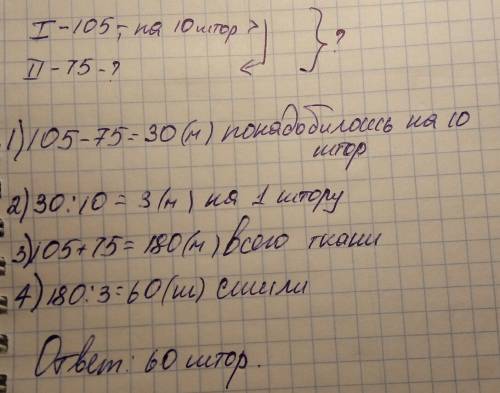 I - 105 - ; на 10 штор >
II - 75 - ?
?
1) 105 - 75 = 30 (м) понадобилось на 10
штор
2) 30 : 10 = 3 (м) на 1 штору
3) 105 + 75 = 180 (м) всего ткани
4) 180 : 3 = 60 (ш) сшили
Ответ: 60 штор.